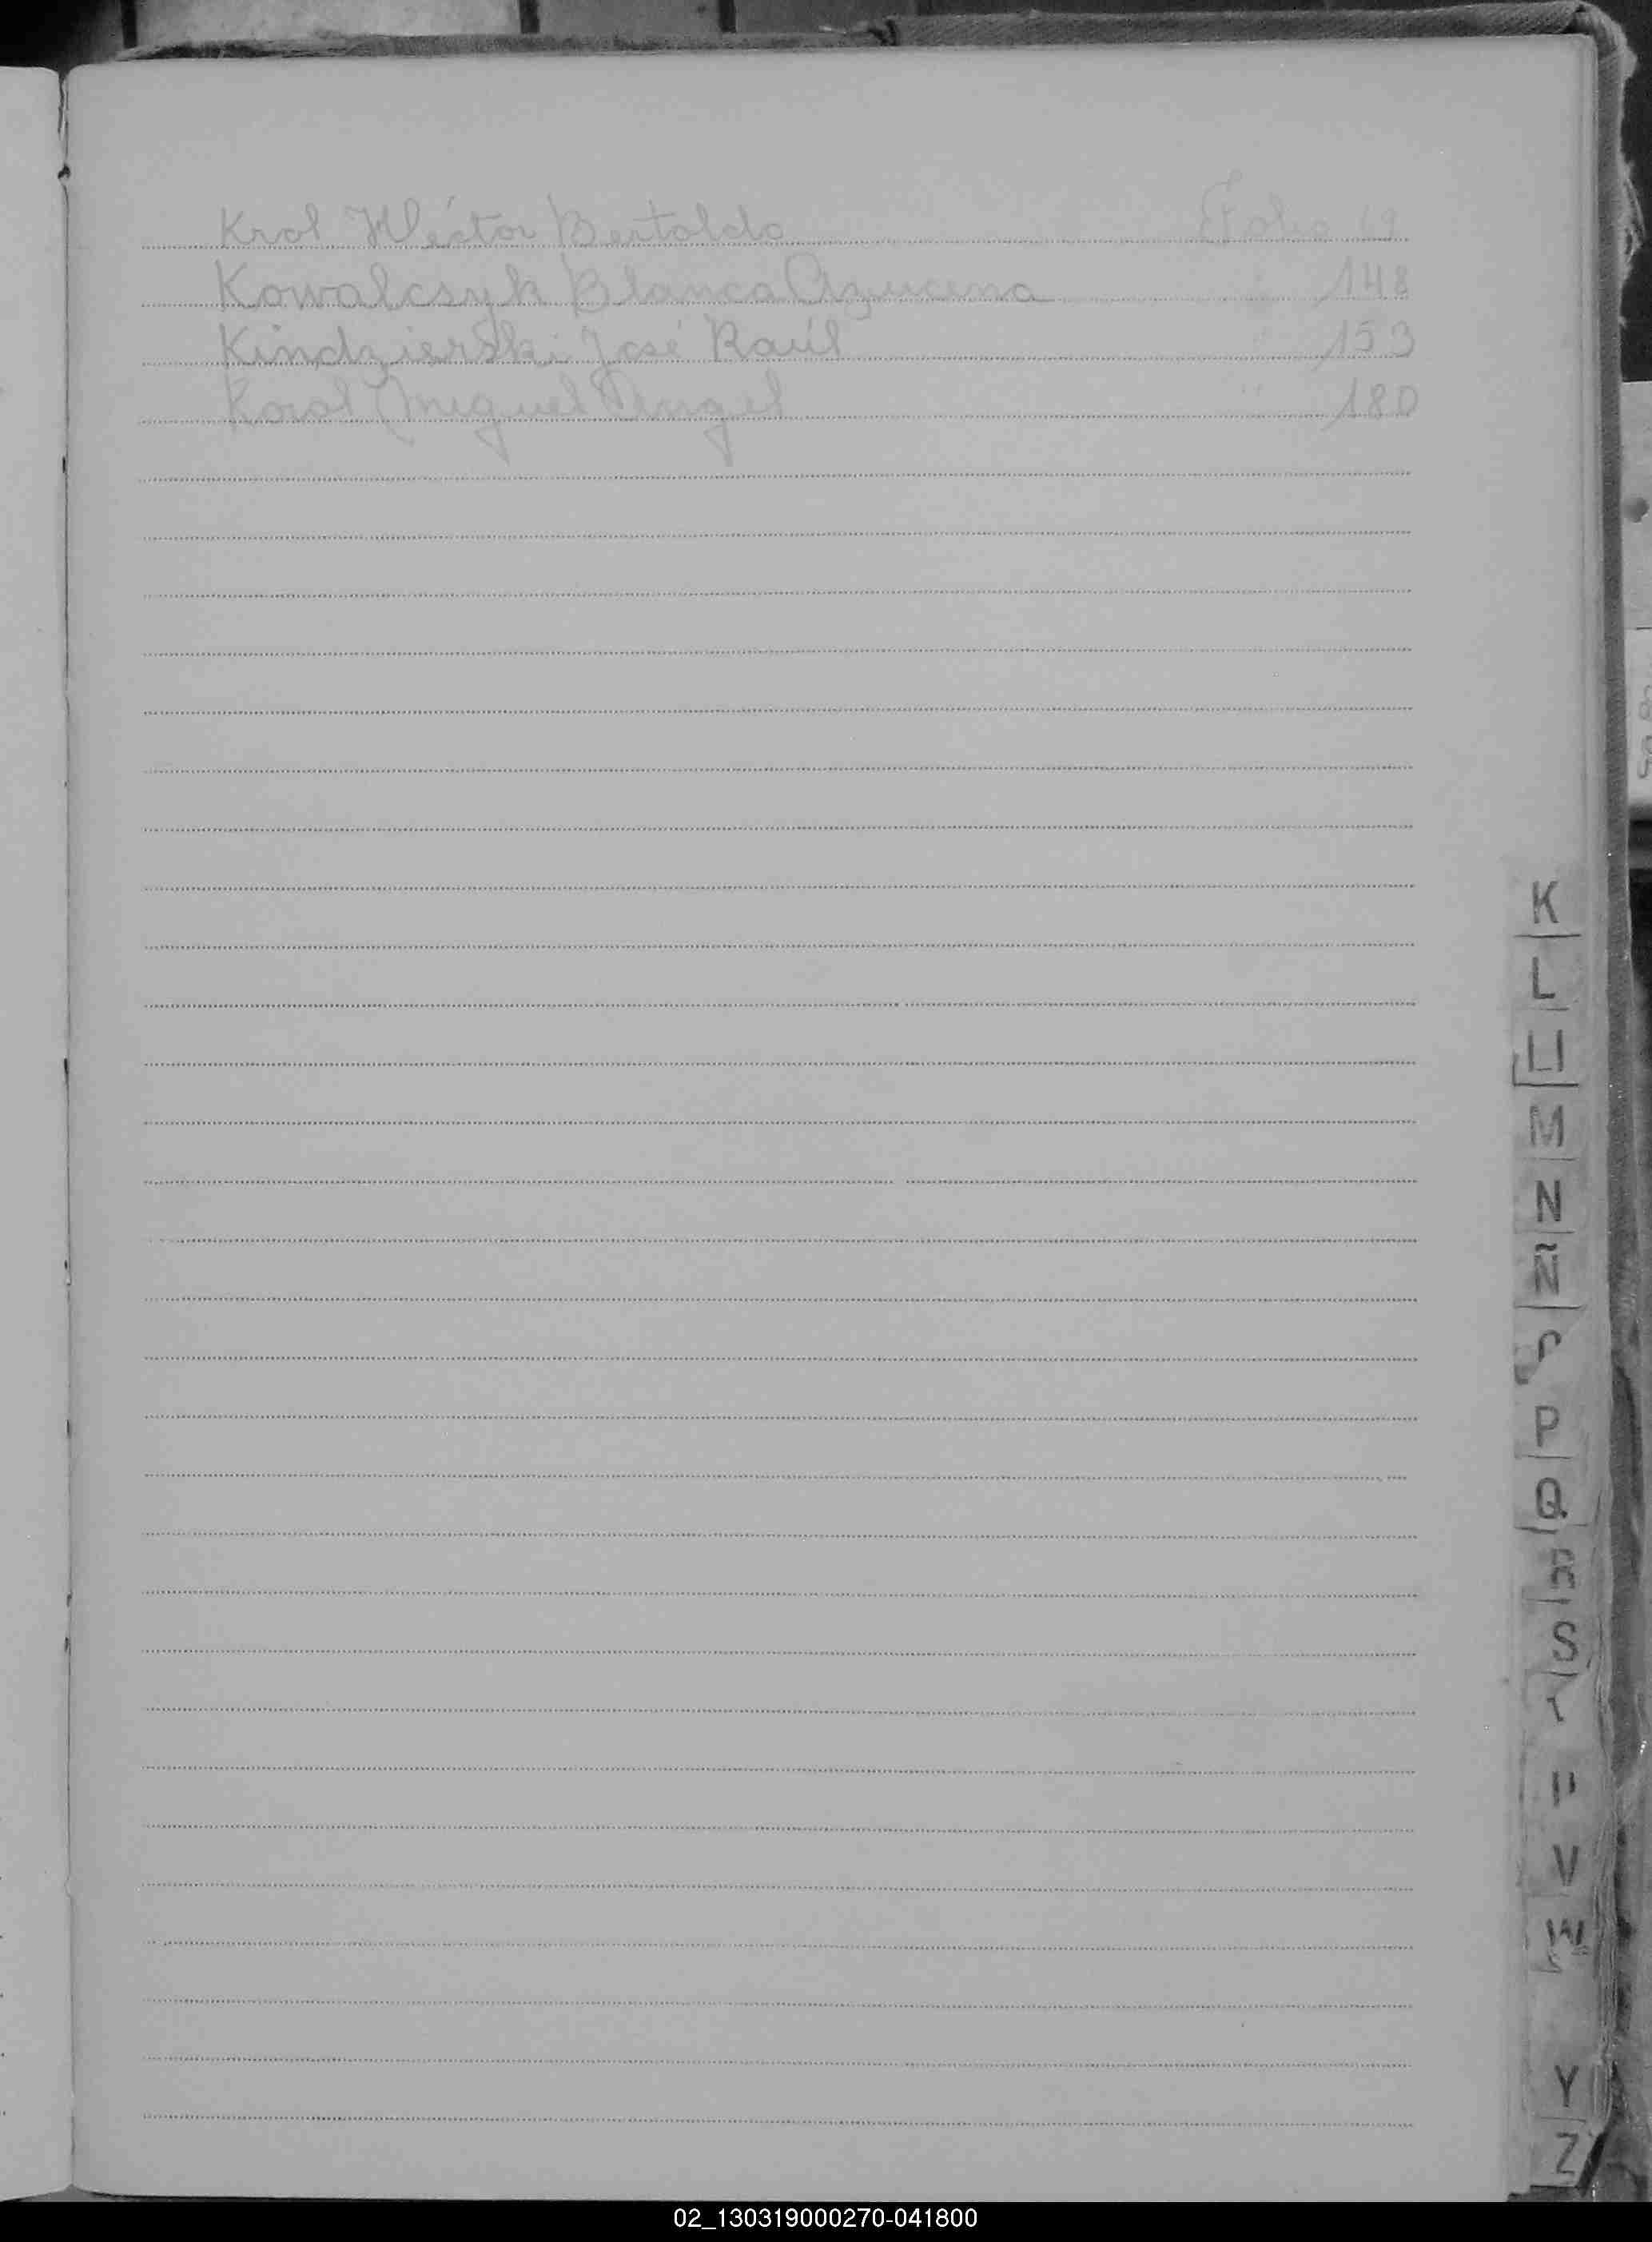 Krol Héctor Bertoldo Folio 19
Kowalcsyk Blanca Azucena " 148
Kindzierski José Raúl " 153
Korol Miguel Angel " 180
K
L
M
N
Ñ
P
Q
R
S
V
W
Y
Z
02_130319000270-041800